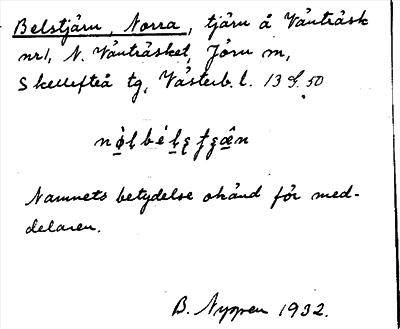 Belstjärn, Norra, tjärn å Vänträsk
nr1, N. Vänträsket, Jörn sn,
Skellefteå tg, Västerb. l. 13 S. 50
Namnets betydelse okänd för med-
delaren.
B. Nyman 1932.